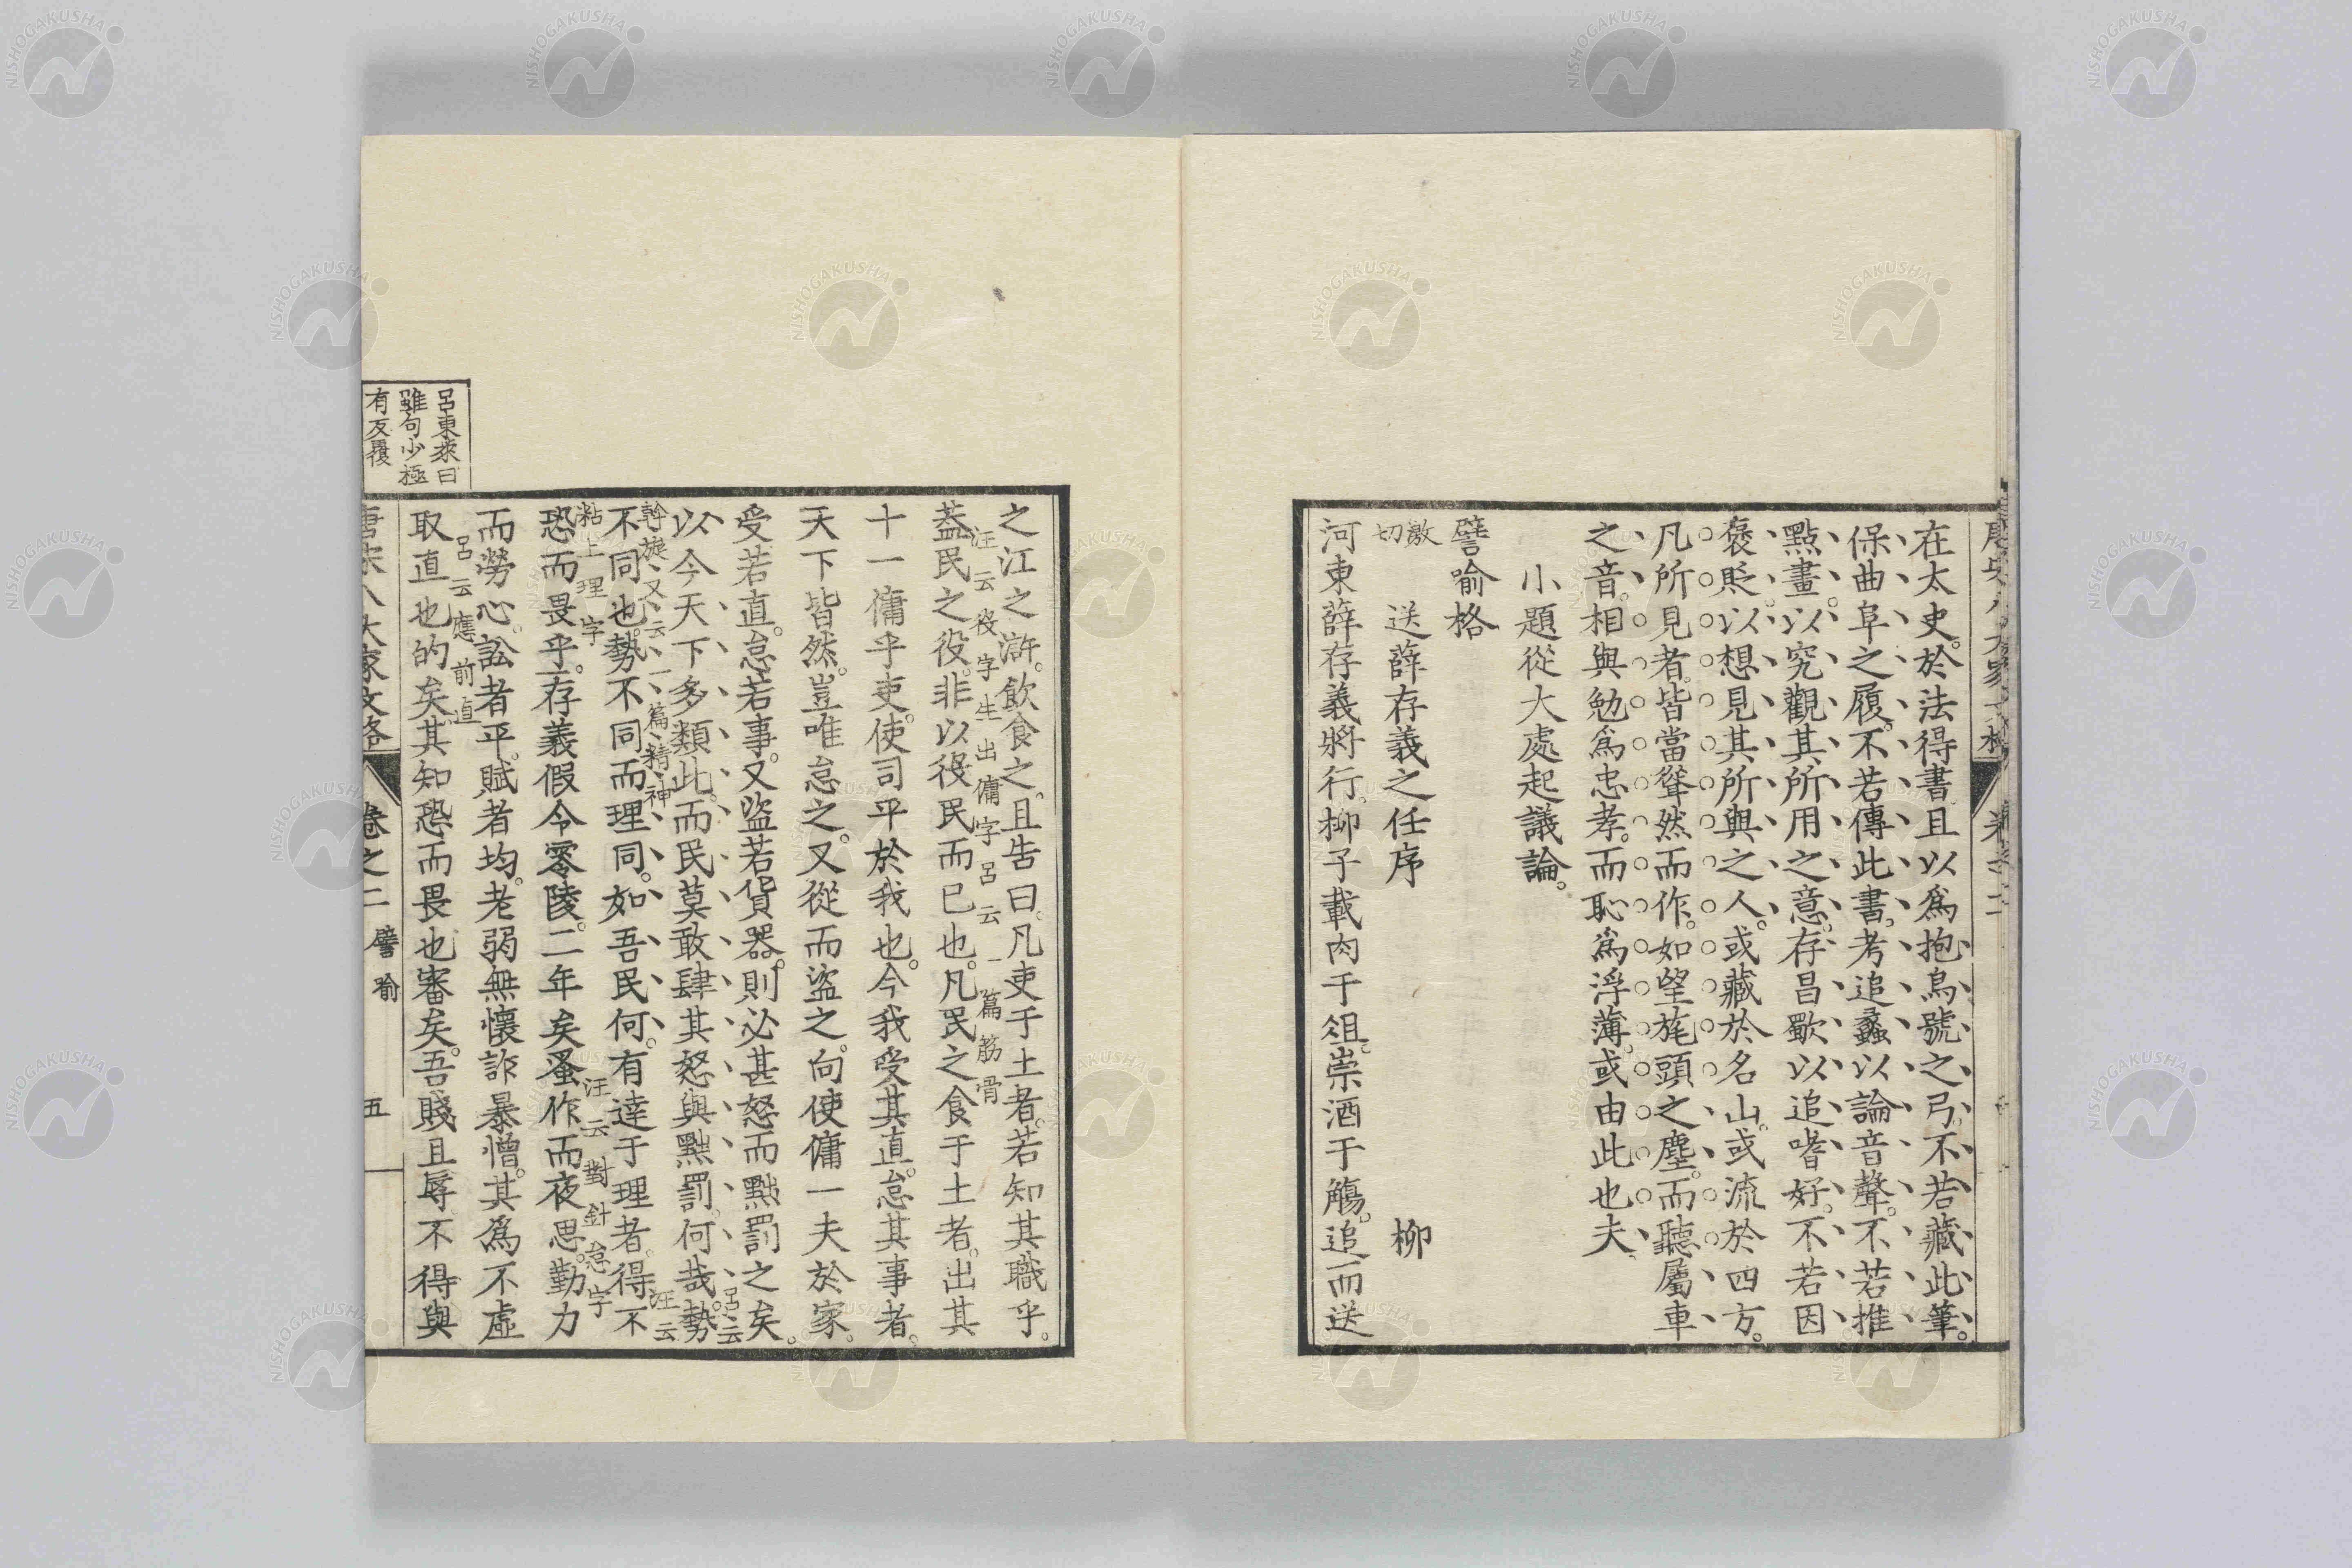 在太史。於法得書且以爲抱烏號之弓。不若藏此筆。
保曲阜之履。不若傳此書。考追蠡以論音聲。不若推
點畫。以究觀其所用之意。存昌歜以追嗜好。不若因
褒貶。以想見其所與之人。或藏於名山。或流於四方。
凡所見者。皆當聳然而作。如望旄頭之塵。而聽屬車
之音。相與勉爲忠孝。而恥爲浮薄。或由此也夫
小題從大處起議論。
譬喻格
激切
送薛存義之任序 柳
河東薛存義將行。柳子載肉于俎。崇酒于觴。追而送
之江之滸。飲食之。且告曰。凡吏于土者。若知其職乎。
汪云役字生出傭字呂云一篇筋骨
葢民之役。非以役民而已也。凡民之食于土者。出其
十一傭乎吏。使司平於我也。今我受其直。怠其事者。
天下皆然。豈唯怠之。又從而盜之。向使傭一夫於家。
受若直。怠若事。又盜若貨器。則必甚怒而黜罰之矣。
呂云
以今天下多類此。而民莫敢肆其怒與黜罰。何哉。勢
幹旋又云一篇精神
汪云
不同也。勢不同而理同。如吾民何。有達于理者。得不
粘上理字
汪云對針怠字
恐而畏乎。存義假令零陵。二年矣。蚤作而夜思。勤力
而勞心。訟者平。賦者均。老弱無懷詐暴憎。其爲不虛
呂云應前直
取直也的矣。其知恐而畏也審矣。吾賤且辱。不得與
呂東萊曰
雖句少極
有反覆
唐宋八大家文格 卷之二 譬喻 五